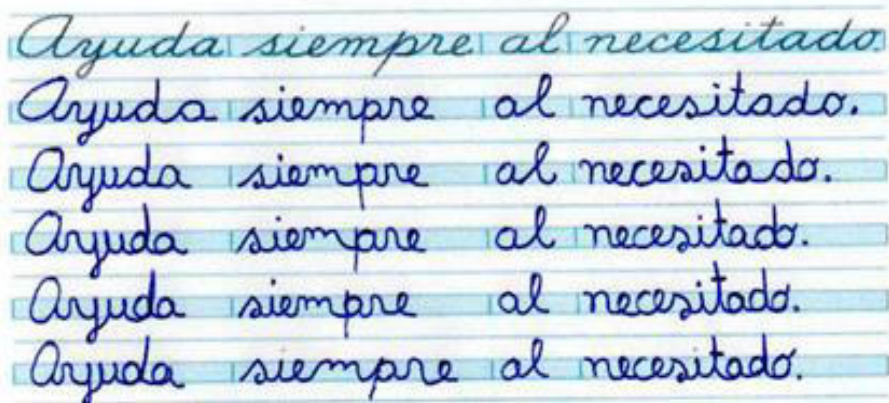 Ayuda siempre al necesitado.
Ayuda siempre al necesitado.
Ayuda siempre al necesitado.
Ayuda siempre al necesitado.
Ayuda siempre al necesitado.
Ayuda siempre al necesitado.